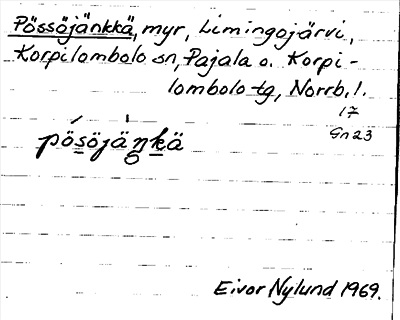 Pössöjänkkä, myr, Limingojärvi,
Korpilombolo sn, Pajala o. Korpi-
lombolo tg, Norrb. l.
17
Gn23
pösöjäŋkä
Eivor Nylund 1969.